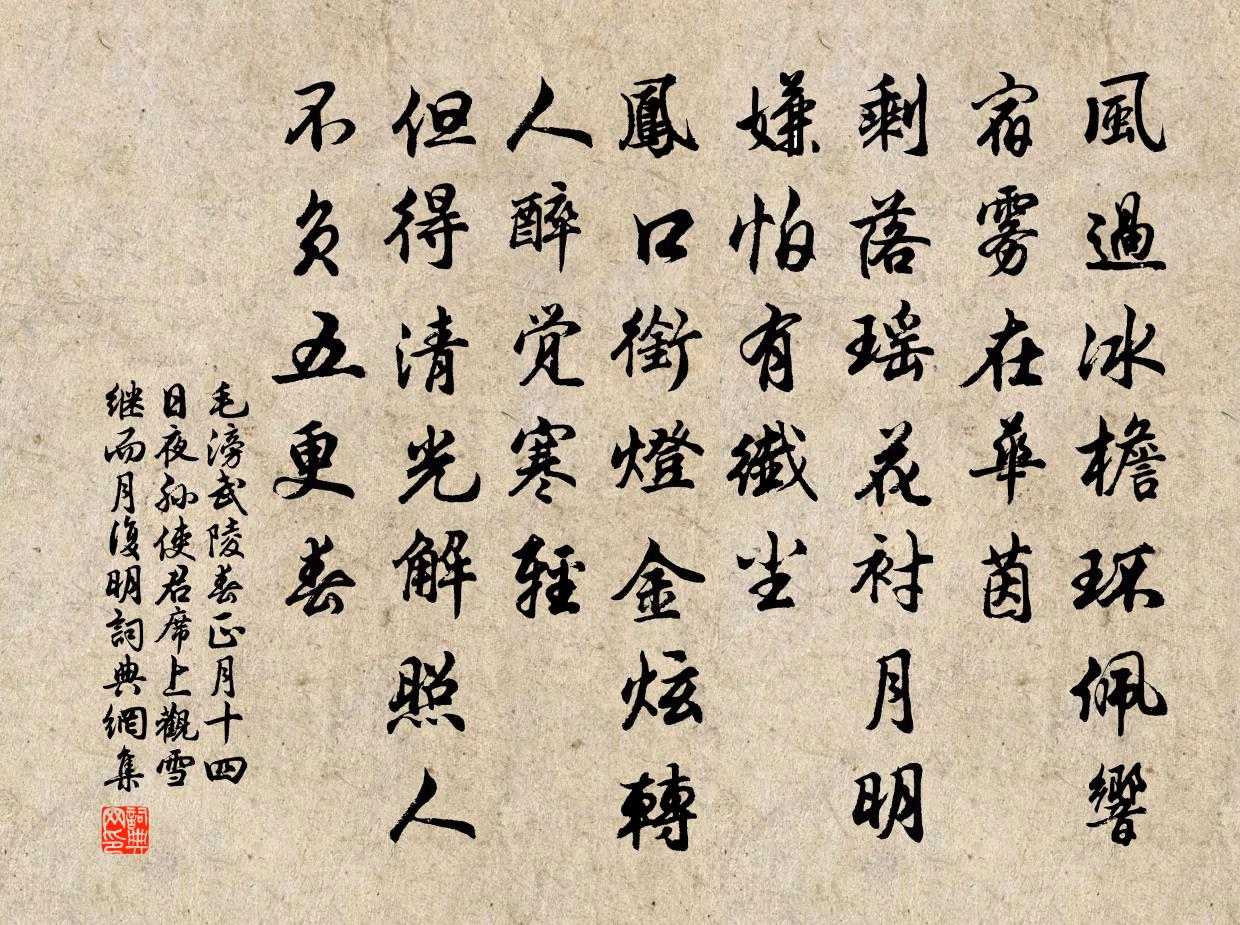 風過冰檐環佩響
宿霧在華茵
剩落瑶花衬月明
嫌怕有纖尘
鳳口銜燈金炫轉
人醉觉寒輕
但得清光解照人
不負五更春
毛滂武陵春正月十四
日夜孙使君席上觀雪
继而月復明詞典網集
詞典
网印